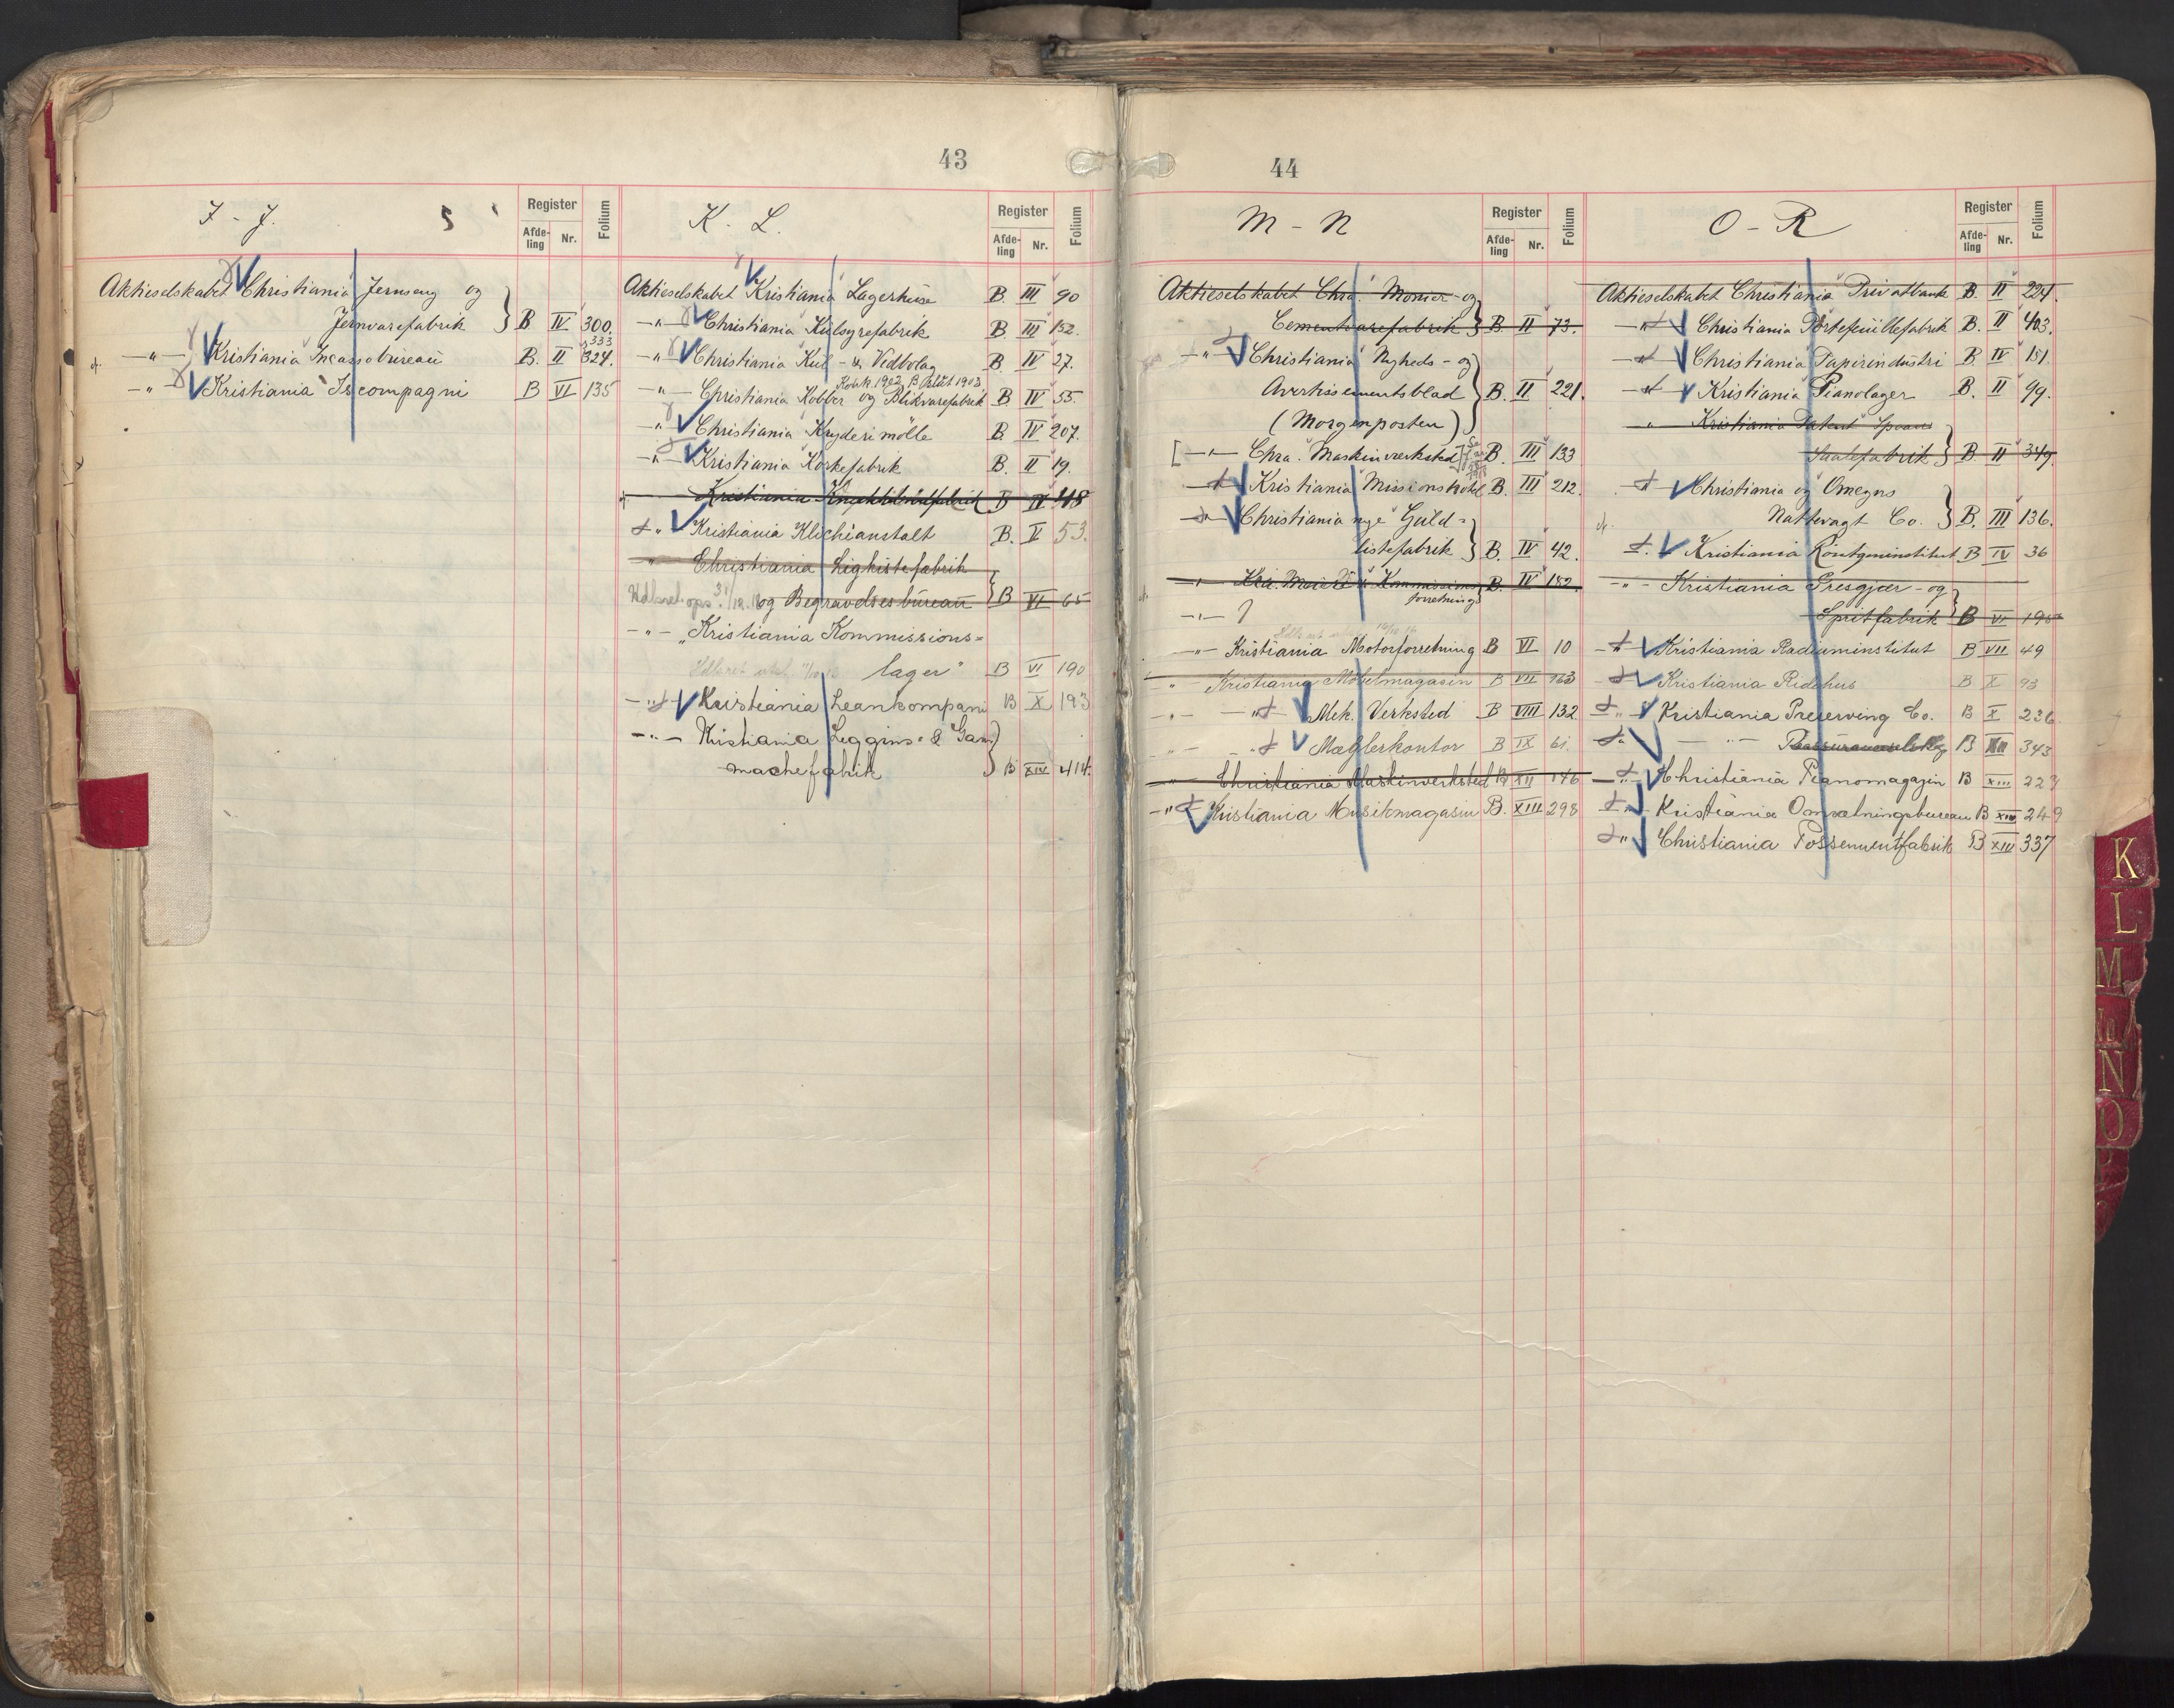 43
I - J.
Register
Afde-
ling
Nr.
Folium
Aktieselskabet Christiania Jernseng og
Jernvarefabrik } B IV 300.
333
-"- Kristiania Incassobureau B. II 324.
-"- Kristiania Iscompagni B VI 135
K - L.
Register
Afde-
ling
Nr.
Folium
Aktieselskabet Kristiania Lagerhuse B. III 90
-"- Christiania Kulsyrefabrik B. III 152.
-"- Christiania Kul - & Vedbolag B. IV 27.
Konk. 1902, Afslut 1903.
-"- Christiania Kobber og Blikvarefabrik B. IV 55.
-"- Christiania Krydderimölle B. IV 207.
-"- Kristiania Korkefabrik B. II 19.
Kristiania B IV 318
" Kristiania Klichéanstalt B. V 53.
" Christiania Ligkistefabrik
og Begravelsesbureau } B VI 65
-"- "Kristiania Kommissions=
lager" B VI 190
-"- Kristiania Leankompani B X 193
-"- Kristiania Leggins- & Gam
machefabrik } B XIV 414.
44
M - N
Register
Afde-
ling
Nr.
Folium
Aktieselskabet Chra. Monier - og
Cementvarefabrik } B. II 73.
-"- Christiania Nyheds - og
Avertissementsblad } B. II 221.
(Morgenposten)
[-"- Chra. Maskinverksted B. III 133
-"- Kristiania Missionshotel B. III 212.
-"- Christiania nye Guld=
listefabrik } B. IV 42.
" Kra. Meieri & Kommissions B. IV 152
forretning
-"- ?
-"- Kristiania Motorforretning B VI 10
" - Kristiania Möbelmagasin B VII 163
-"- -"- Mek. Verksted B VIII 132
"- -"- Mæglerkontor B IX 61.
" Christiania Maskinverksted B XII 146
-"- Kristiania Musikmagasin B. XIII 298
O - R
Register
Afde-
ling
Nr.
Folium
Aktieselskabet Christiania Privatbank B. II 224.
-"- Christiania Portefeuillefabrik B. II 403.
-"- Christiania Papirindustri B. IV 151.
-"- Kristiania Pianolager B. II 99.
" Kristiania Patent
} B II 349.
-"- Christiania og Omegns
Nattevagt Co. } B. III 136.
" Kristiania Röntgeninstitut B IV 36
-"- Kristiania Presgjær - og
Spritfabrik } B VI
-"- Kristiania Radiuminstitut B VII 49
-"- Kristiania Ridehus B X 93
" Kristiania Preserving Co. B X 236
" -"- B XII 343
-"- Christiania Pianomagasin B XIII 227
" Kristiania Omsætningsbureau B XIV 249
" Christiania Possementfabrik B XIII 337
K
L
M
N
O